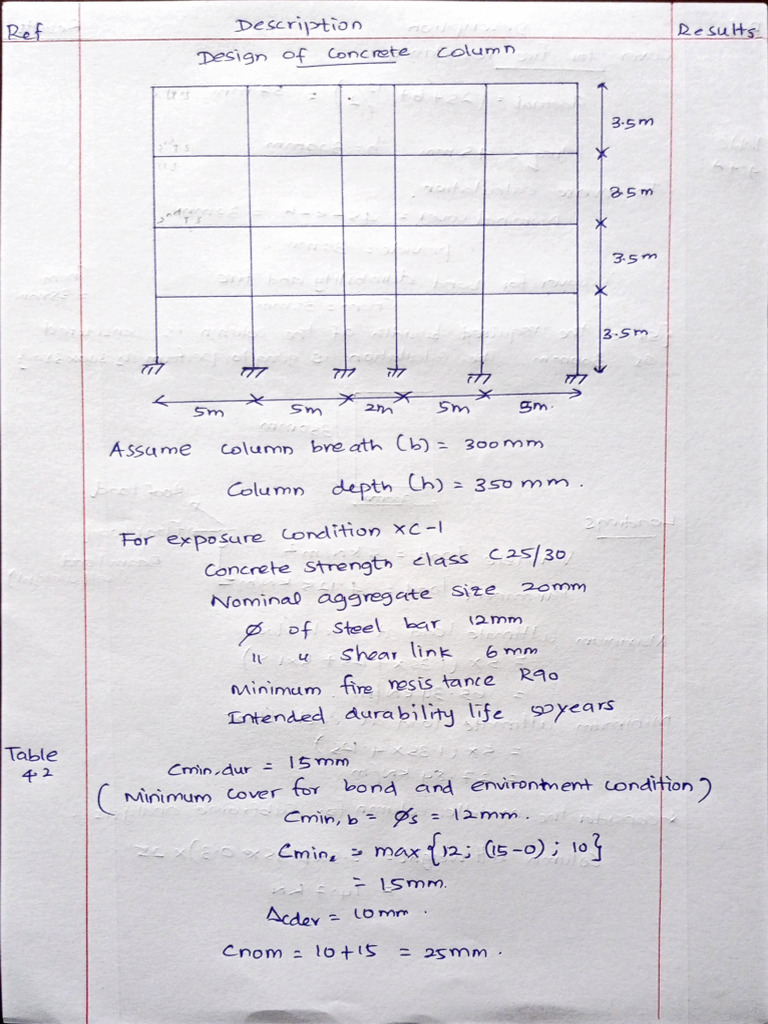 Ref
Description
Results
Design of concrete column
3.5m
3.5m
3.5m
3.5m
5m 5m 2m 5m 5m.
Assume column breath (b) = 300mm
Column depth (h) = 350 mm.
For exposure condition XC-1
Concrete strength class C25/30
Nominal aggregate size 20mm
ø of steel bar 12mm
" " shear link 6mm
Minimum fire resistance R90
Intended durability life 50years
Table
4.2
Cmin,dur = 15mm
(Minimum cover for bond and environtment condition)
Cmin,b = øs = 12mm.
Cmin, = max{12; (15-0); 10}
= 15mm.
Δcdev = 10mm.
Cnom = 10+15 = 25mm.